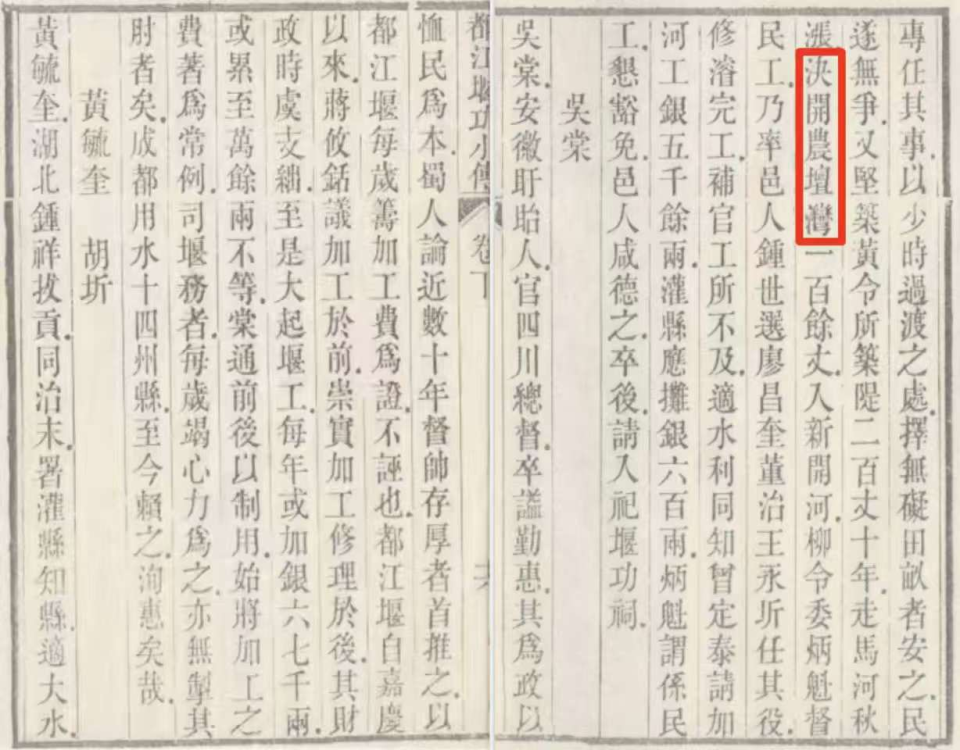 專任其事以少時過渡之處擇無礙田畝者安之民
遂無爭又堅築黃令所築隄二百丈十年走馬河秋
漲決開農壇灣一百餘丈入新開河柳令委炳魁督
民工乃率邑人鍾世選廖昌奎董治王永圻任其役
修濬完工補官工所不及適水利同知曾定泰請加
河工銀五千餘兩灌縣應攤銀六百兩炳魁謂係民
工懇豁免邑人咸德之卒後請入祀堰功祠
吳棠
吳棠安徽盱眙人官四川總督卒謚勤惠其為政以
都江堰功小傳 卷下
恤民為本蜀人論近數十年督帥存厚者首推之以
都江堰每歲籌加工費為證不誣也都江堰自嘉慶
以來蔣攸銛議加工於前崇實加工修理於後其財
政時虞支絀至是大起堰工每年或加銀六七千兩
或累至萬餘兩不等棠通前後以制用始將加工之
費著為常例司堰務者每歲竭心力為之亦無掣其
肘者矣成都用水十四州縣至今賴之洵惠矣哉
黃毓奎 胡圻
黃毓奎湖北鍾祥拔貢同治末署灌縣知縣適大水